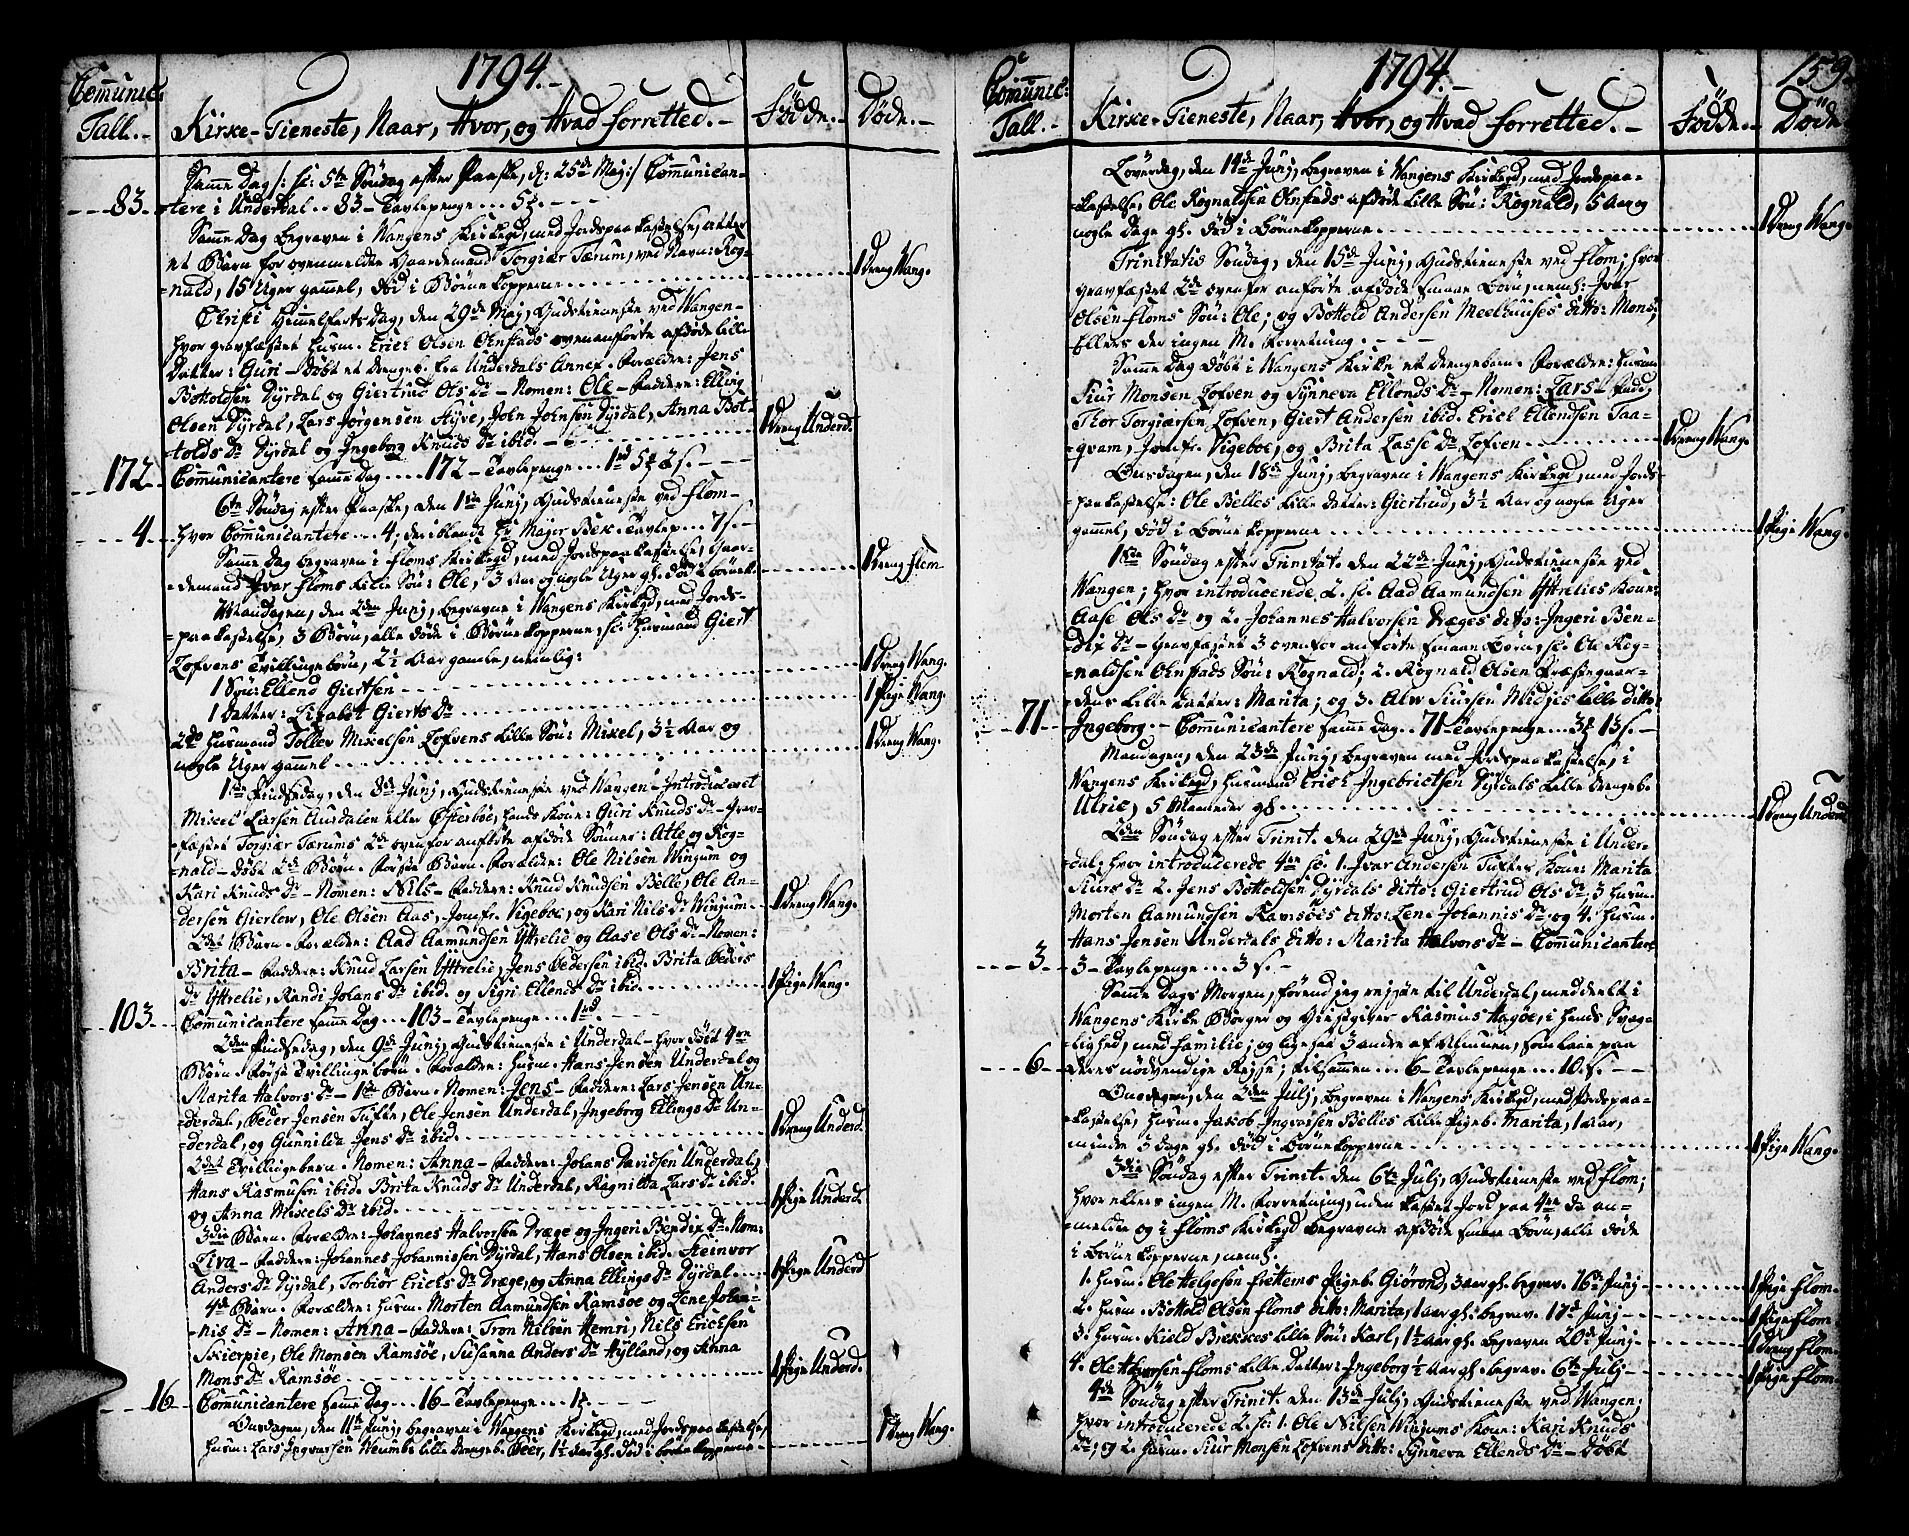 1794.
Communic: Tall.
Kirke-Tieneste, Naar, Hvor, og Hvad forretted.
Födde.
Döde.
Samme Dag /: sc: 5te Söndag efter Paaske, d: 25de Maij :/ Communican-
83. tere i Underdal .. 83 - Tavlepenge ... 5
Samme Dag begraven i Wangens Kirkegd, med Jordspaakastelse, atter
et Barn for ovenmeldte Gaardemand Torgiær Tærum, ved Navn: Rog-
nald, 15 Uger gammel, död i Börnekopperne 1 Dreng Wang.
Christi Himmelfarts Dag, den 29de Maij, Gudstieneste ved Wangen -
hvor gravfæstet husm. Erich Olsen Onstads ovenanförte afdöde lille
Datter: Guri - Döbt et Drengeb. fra Underdals Annex. Forældre: Jens
Bottoldsen Dÿrdal og Giertrud Ols Dr - Nomen: Ole - Faddere: Elling
Olsen Dÿrdal, Lars Jörgensen Hÿve, John Johnsen Dÿrdal, Anna Bot-
tolds Dr Dÿrdal og Ingeborg Knuds Dr ibid. 1 Dreng Underd.
172 Communicantere samme Dag .... 172 - Tavlepenge ... 1rd 5 2 s.
6te Söndag efter Paaske, den 1ste Junij, Gudstieneste ved Flom -
4 hvor Communicantere .... 4, deriblandt Hr Major Bek. Tavlep... 7 s.
Samme Dag begraven i Floms Kirkegd, med Jordspaakastelse, Gaar-
demand Ivar Floms lille Sön: Ole, 3 Aar og nogle Uger gl. död i börnek. 1 Dreng Flom
Mandagen, den 2den Junij, begravne i Wangens Kirkegd, med Jords-
paakastelse, 3 Börn, alle döde i Börnekopperne, sc. Husmand Giert
Lofvens Tvillingebörn, 2½ Aar gamle, nemlig:
1 Sön: Ellend Giertsen 1 Dreng Wang.
1 Datter: Lisabet Gierts Dr 1 Pige Wang.
2do Husmand Tollev Mikelsen Lofvens lille Sön: Mikel, 3½ Aar og
nogle Uger gammel 1 Dreng Wang.
1ste Pindsedag, den 8de Junij, Gudstieneste ved Wangen - Introduceret
Mickel Larsen Aurdalen eller Österböe, hands Kone: Guri Knuds Dr - Grav-
fæstet Torgiær Tærums 2de ovenfor anförte afdöde Sönner: Atle og Rog-
nald - Döbt 2de Börn. Förste Barn. Forældre: Ole Nilsen Winjum og
Kari Knuds Dr - Nomen: Nils - Faddere: Knud Knudsen Belle, Ole An-
dersen Gierlow, Ole Olsen Aas, Jomfr. Vigeboe, og Kari Nils Dr Winjum. 1 Dreng Wang.
2det Barn. Forældre: Aad Aamundsen Ÿttrelie og Aase Ols Dr - Nomen:
Brita - Faddere: Knud Larsen Ÿttrelie, Jens Pedersen ibid. Brita Peders
Dr Ÿttrelie, Randi Johans Dr ibid. og Sigri Ellends Dr ibid. 1 Pige Wang.
103 Communicantere samme Dag ... 103 - Tavlepenge ... 1rd.
2den Pindsedag, den 9de Junij, Gudstieneste i Underdal - hvor döbt 4re
Börn. Först Tvillingebörn. Forældre: Husm. Hans Jensen Underdal og
Marita Halvors Dr - 1ste Barn. Nomen: Jens - Faddere: Lars Jensen Un-
derdal, Peder Jensen Tufte, Ole Jensen Underdal, Ingeborg Ellings Dr Un-
derdal, og Gunnilda Jens Dr ibid. 1 Dreng Underd.
2det Tvillingebarn. Nomen: Anna - Faddere: Johans Davidsen Underdal,
Hans Rasmusen ibid. Brita Knuds Dr Underdal, Ragnilda Lars Dr ibid.
og Anna Mikels Dr ibid. 1 Pige Underd.
3die Barn. Forældre: Johannes Halvorsen Dræge og Ingeri Bendix Dr. Nom:
Liva - Faddere: Johannes Johannissen Dÿrdal, Hans Olsen ibid. Steinvor
Anders Dr Dÿrdal, Torbiör Erichs Dr Dræge, og Anna Ellings Dr Dÿrdal 1 Pige Underd
4de Barn. Forældre: Husm. Morten Aamundsen Ramsöe og Lene Johan-
nis Dr - Nomen: Anna - Faddere: Tron Nilsen Hemri, Nils Erichsen
Skierpie, Ole Monsen Ramsöe, Susanna Anders Dr Hÿlland, og Anna
Mons Dr Ramsöe 1 Pige Underd.
16 Communicantere samme Dag ... 16 - Tavlepenge ... 1
Onsdagen, den 11te Junij, begraven i Wangens Kirkegd, med Jordspaakastelse,
Husm: Lars Ingvarsen Neumbs lille Drengeb. Peer, 1½ Aar gl. död i Börnekopperne 1 Dreng Wang.
1794.
159.
Communic: Tall.
Kirke-Tieneste, Naar, Hvor, og Hvad forretted.
Födde.
Döde
Löverdag, den 14de Junij, begraven i Wangens Kirkegd, med Jordspaa-
kastelse, Ole Rognaldsen Onstads afdöde lille Sön: Rognald, 5 Aar og
nogle Dage gl. död i Börnekopperne 1 Dreng Wang.
Trinitatis Söndag, den 15de Junij, Gudstieneste ved Flom; hvor
gravfæstet 2de ovenfor anförte afdöde smaae Börn, neml: Ivar
Olsen Floms Sön: Ole; og Bottold Andersen Meelhuuses ditto: Mons;
Ellers der ingen M. Forretning.
Samme Dag döbt i Wangens Kirke et Drengebarn. Forældre: Husm.
Siur Monsen Lofven og Sÿnneva Ellends Dr - Nomen: Lars - Fadd:
Thor Torgiærsen Lofven, Giert Andersen ibid. Erich Ellendsen Taa-
gram, Jomfr. Vigeboe, og Brita Lasse Dr Lofven 1 Dreng Wang.
Onsdagen, den 18de Junij, begraven i Wangens Kirkegd, med Jords-
paakastelse: Ole Belles lille Datter: Giertrud, 3½ Aar og nogle Uger
gammel, död i Börnekopperne 1 Pige Wang.
1ste Söndag efter Trinitat. den 22de Junij, Gudstieneste ved
Wangen; hvor introducerede 2. sc. Aad Aamundsen Ÿttrelies Kone:
Aase Ols Dr og 2. Johannes Halvorsen Dræges ditto: Ingeri Ben-
dix Dr - Gravfæstet 3 ovenfor anförte smaae Börn, sc. Ole Rog-
naldsen Onstads Sön: Rognald; 2. Rognald Olsen Præstegaar-
dens lille Datter: Marita; og 3. Alw Siursen Midjes lille ditto:
71 Ingeborg. - Communicantere samme Dag .. 71 - Tavlepenge ... 3 13 s.
Mandagen, den 23de Junij, begraven med Jordspaakastelse, i
Wangens Kirkegd, Husmand Erich Ingebrictsen Dÿrdals lille Drengeb.
Ulric, 5 Maaneder gl. 1 Dreng Underd
2den Söndag efter Trinit. den 29de Junij, Gudstieneste i Under-
dal; hvor introducerede 4re sc. 1. Ivar Andersen Tuftes Kone: Marita
Siurs Dr 2. Jens Bottoldsen Dÿrdals ditto: Giertrud Ols Dr, 3 Husm.
Morten Aamundsen Ramsöes ditto: Lene Johannis Dr og 4. Husm.
Hans Jensen Underdals ditto: Marita Halvors Dr - Communicantere
3 3 - Tavlepenge ... 3 s.
Samme Dags Morgen, förend jeg rejste til Underdal, meddeelt i
Wangens Kirke Borger og Giestgiver Rasmus Hagöe, i hands Svag-
lighed, med Familie; og ligesaa 3 andre af Almuen, som laae paa
6 deres nödvendige Rejse; tilsammen ... 6 - Tavlepenge ... 10. s.
Onsdagen, den 2den Julij, begraven i Wangens Kirkegd, med Jordspaa-
kastelse, Husm. Jakob Ingvarsen Belles lille Pigeb. Marita, 1 Aar,
mindre 3 Dage gl. död i Börnekopperne 1 Pige Wang.
3die Söndag efter Trinit. den 6te Julij, Gudstieneste ved Flom;
hvor ellers ingen M. Forretning, uden kastet Jord paa 4re da an-
meldte og i Floms Kirkegd begravne afdöde smaae Börn, alle döde
i Börnekopperne, neml.
1. Husm. Ole Helgesen Frettems Pigeb. Giörond, 3 Aar gl. begrav. 16de Junij 1 Pige Flom.
2. Husm. Bottold Olsen Floms ditto: Marita, 1 Aar gl. begrav. 17de Junij 1 Pige Flom.
3. Husm. Kield Brekkes lille Sön: Karl, 1½ Aar gl. begraven 20de Junij 1 Dreng Flom.
4. Ole Halvorsen Floms lille Datter: Ingeborg ½ Aar gl. begrav. 6te Julij 1 Pige Flom.
4de Söndag efter Trinit. den 13de Julij, Gudstieneste ved Wangen;
hvor introducerede 2. sc: 1. Ole Nilsen Winjums Kone: Kari Knuds
Dr, og 2. Husm. Siur Monsen Lofvens ditto: Sÿnneva Ellends Dr - Döbt